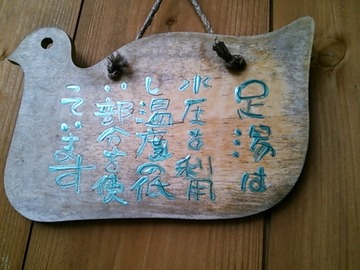 足湯は
水圧を利用
し温度の低
い部分を使
っています